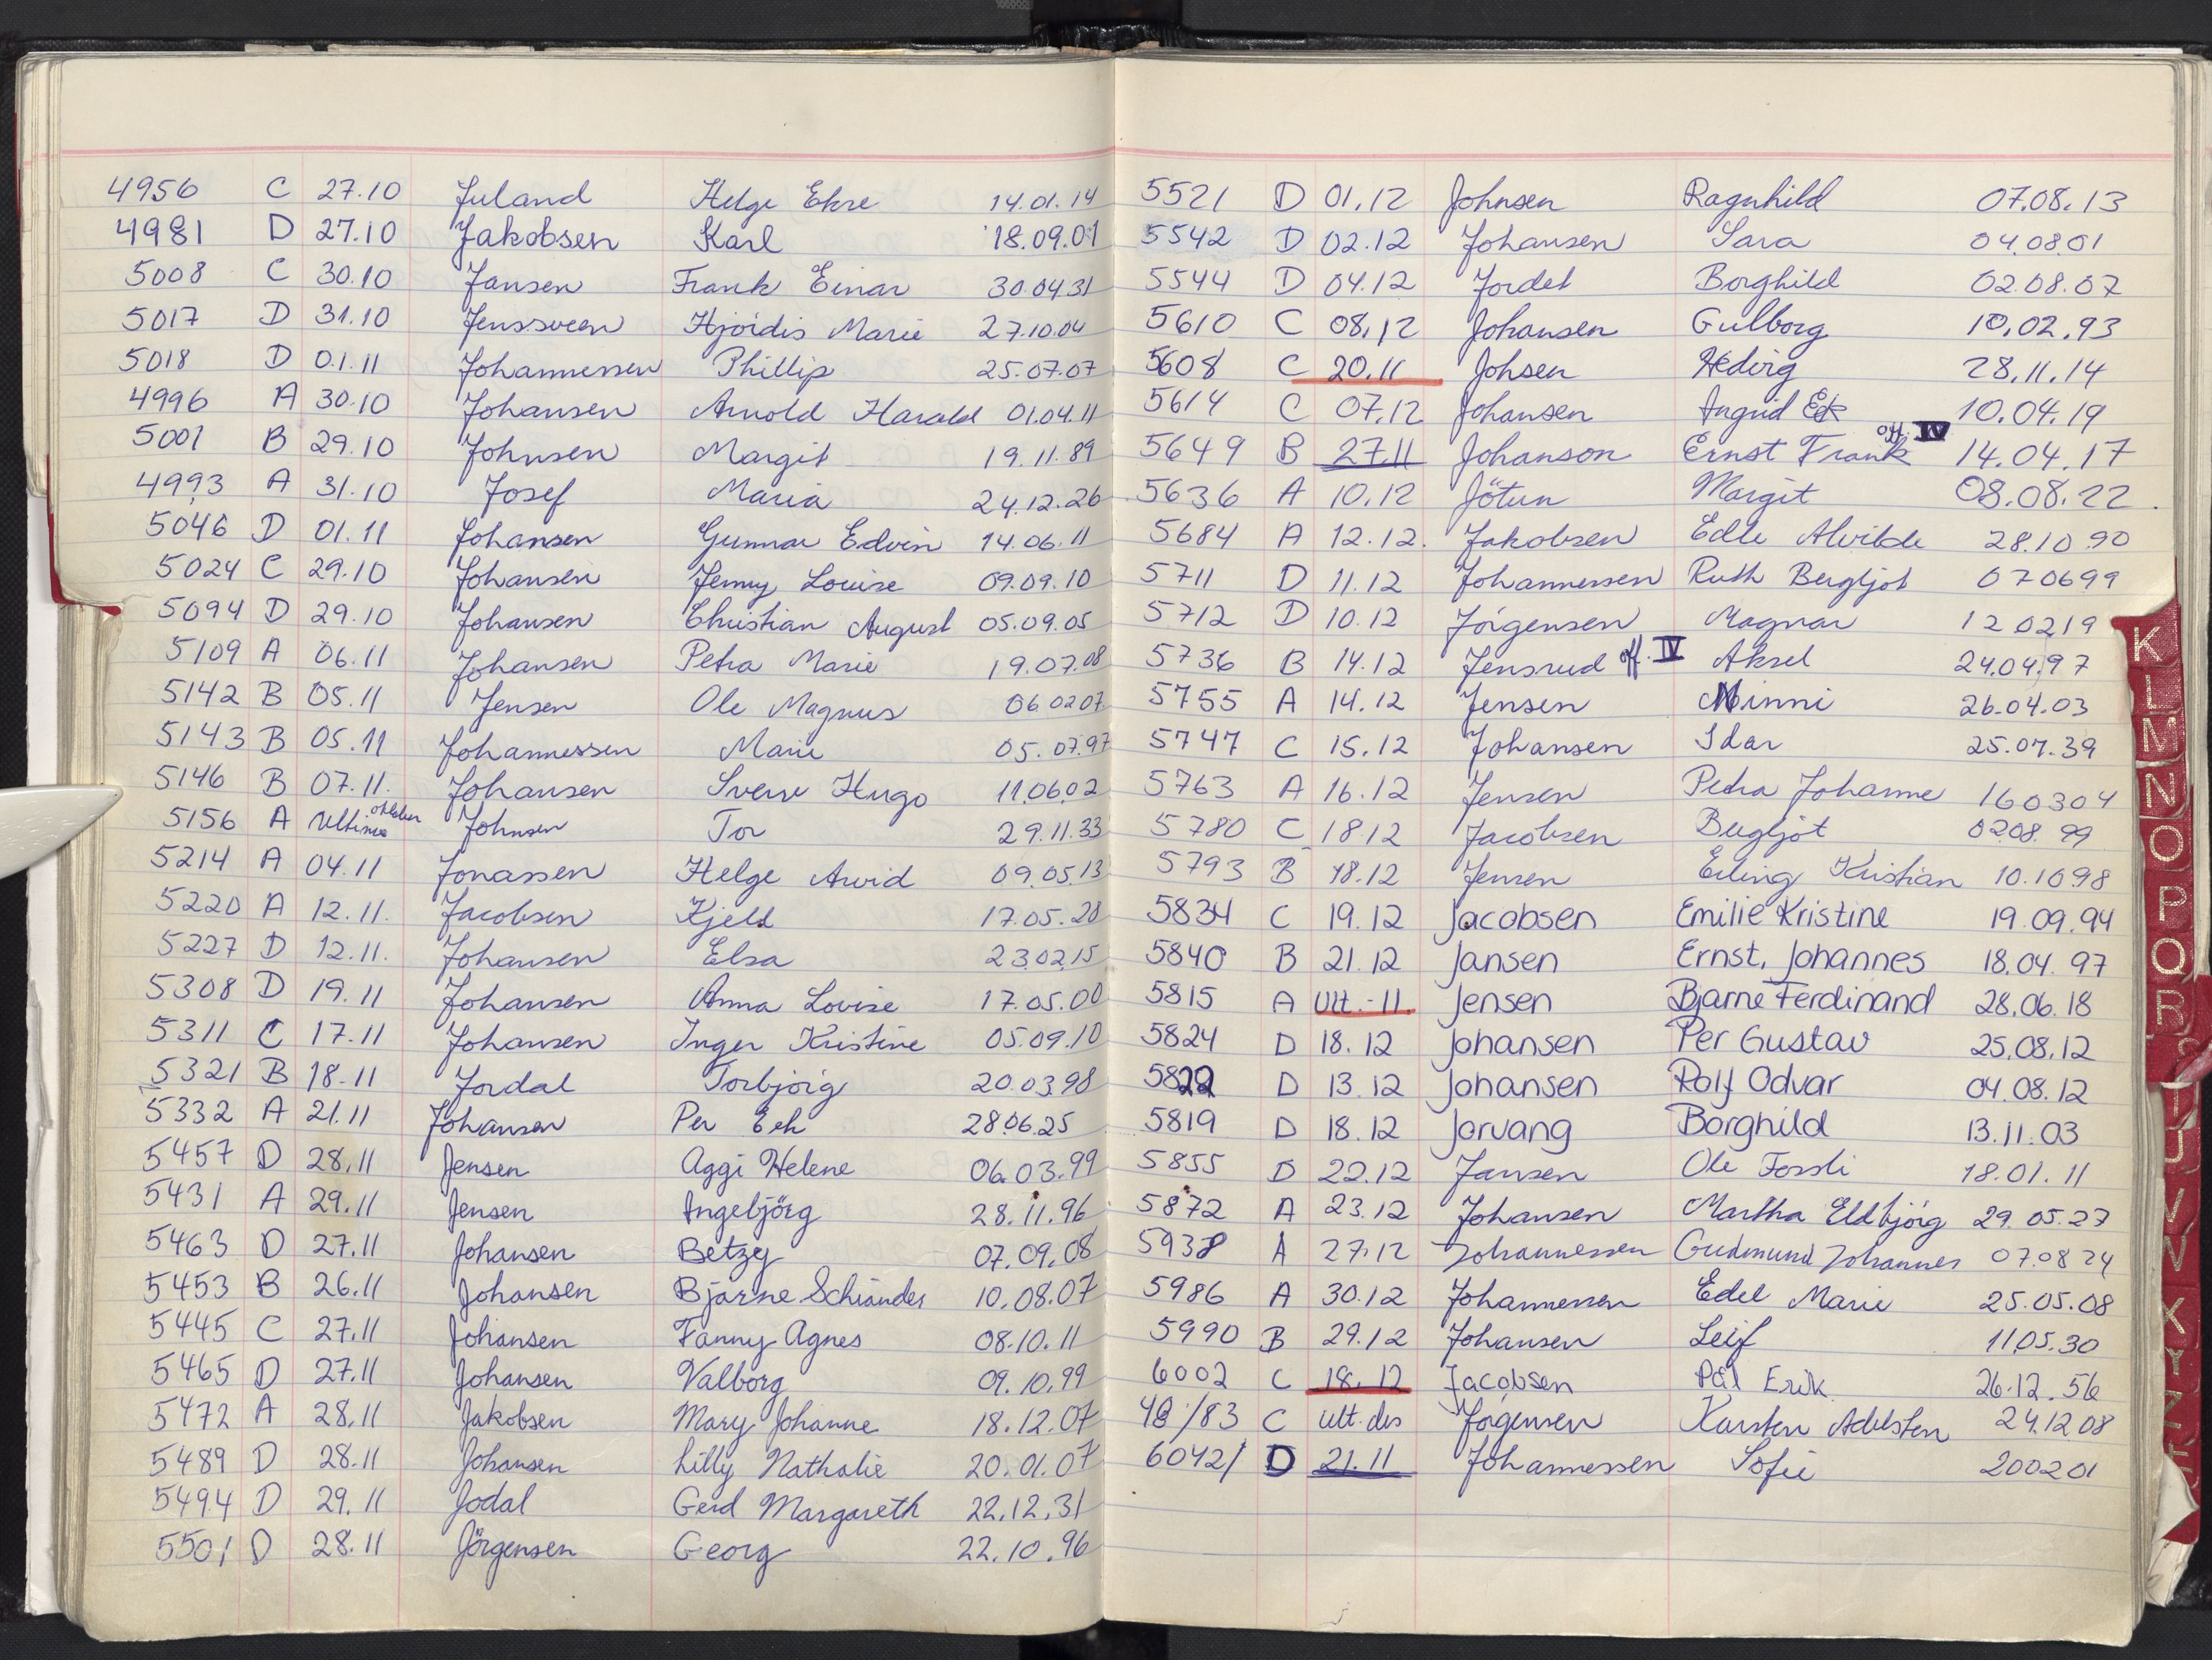 4956 C 27.10 Juland Helge Ekre 14.01.14
4981 D 27.10 Jakobsen Karl 18.09.01
5008 C 30.10 Jansen Frank Einar 30.04.31
5017 D 31.10 Jenssveen Hjördis Marie 27.10.04
5018 D 01.11 Johannessen Phillip 25.07.07
4996 A 30.10 Johansen Arnold Harald 01.04.11
5001 B 29.10 Johnsen Margit 19.11.89
4993 A 31.10 Josef Maria 24.12.26
5046 D 01.11 Johansen Gunnar Edvin 14.06.11
5024 C 29.10 Johansen Jenny Louise 09.09.10
5094 D 29.10 Johansen Christian August 05.09.05
5109 A 06.11 Johansen Petra Marie 19.07.08
5142 B 05.11 Jensen Ole Magnus 06.02 07
5143 B 05.11 Johannessen Marie 05.07.97
5146 B 07.11. Johansen Sverre Hugo 11.06.02
5156 A Ultimo oktober Johnsen Tor 29.11.33
5214 A 04.11 Jonassen Helge Arvid 09.05.13
5220 A 12.11. Jacobsen Kjell 17.05.28
5227 D 12.11. Johansen Elsa 23.02.15
5308 D 19.11 Johansen Anna Lovise 17.05.00
5311 C 17.11 Johansen Inger Kristine 05.09.10
5321 B 18-11 Jordal Torbjörg 20.03.98
5332 A 21.11 Johansen Per Erh 28.06.25
5457 D 28.11 Jensen Aggi Helene 06.03.99
5431 A 29.11 Jensen Ingebjörg 28.11.96
5463 D 27.11 Johansen Betzy 07.09.08
5453 B 26.11 Johansen Bjarne Schiander 10.08.07
5445 C 27.11 Johansen Fanny Agnes 08.10.11
5465 D 27.11 Johansen Valborg 09.10.99
5472 A 28.11 Jakobsen Mary Johanne 18.12.07
5489 D 28.11 Johansen Lilly Nathalie 20.01.07
5494 D 29.11 Jodal Gerd Margareth 22.12.31
5501 D 28.11 Jörgensen Georg 22.10.96
5521 D 01.12 Johnsen Ragnhild 07.08.13
5542 D 02.12 Johansen Sara 04.08.01
5544 D 04.12 Jordet Borghild 02.08.07
5610 C 08.12 Johansen Gulborg 10.02.93
5608 C 20.11 Johsen Hedvig 28.11.14
5614 C 07.12 Johansen Ingrid Ek 10.04.19
5649 B 27.11 Johanson Ernst Frank off. IV 14.04.17
5636 A 10.12 Jötun Margit 08.08.22
5684 A 12.12. Jakobsen Edle Alvilde 28.10 90
5711 D 11.12 Johannessen Ruth Bergljot 070699
5712 D 10.12 Jörgensen Magnar 120219
5736 B 14.12 Jensrud off. IV Aksel 24.04.97
5755 A 14.12 Jensen Minni 26.04.03
5747 C 15.12 Johansen Idar 25.07.39
5763 A 16.12 Jensen Petra Johanne 160304
5780 C 18.12 Jacobsen Bergljot 0208.99
5793 B 18.12 Jensen Erling Kristian 10.1098
5834 C 19.12 Jacobsen Emilie Kristine 19.09.94
5840 B 21.12 Jansen Ernst, Johannes 18.04.97
5815 A Ult.-11 Jensen Bjarne Ferdinand 28.06.18
5824 D 18.12 Johansen Per Gustav 25.08.12
5822 D 13.12 Johansen Rolf Odvar 04.08.12
5819 D 18.12 Jorvang Borghild 13.11.03
5855 D 22.12 Jansen Ole Fossli 18.01.11
5872 A 23.12 Johansen Martha Eldbjörg 29.05.27
5938 A 27.12 Johannessen Gudmund Johannes 07.08 24
5986 A 30.12 Johannessen Edel Marie 25.05.08
5990 B 29.12 Johansen Leif 11.05.30
6002 C 18.12 Jacobsen Pål Erik 26.12.56
48/83 C ult. des Jørgensen Karsten Adelsten 24.12 08
6042/ D 21.11 Johannessen Sofie 200201
K
L
M
N
O
P
Q
R
S
T
U
V
W
X
Y
Z